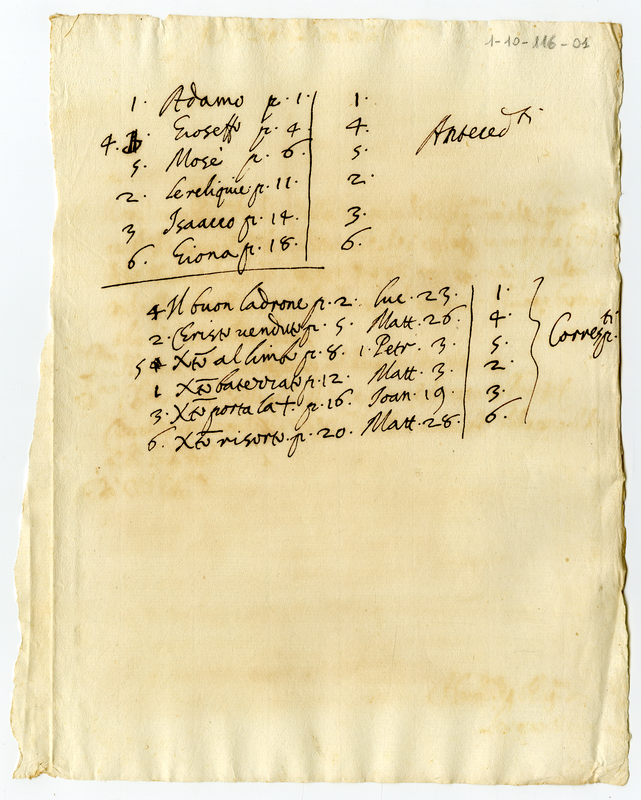 1-10-116-01
1. Adamo p. 1. 1.
4. Gioseffo p. 4. 4. Anteced.ti
5. Mosè p. 6. 5.
2. Le reliquie p. 11. 2.
3 Isaacco p. 14. 3.
6. Giona p. 18. 6.
4 Il buon ladrone p. 2. Luc. 23. 1.
2. Christo venduto p. 5. Matt. 26 4. Corresp.ti
5 Xto al limbo p. 8. 1. Petr. 3. 5.
1 Xto batezzato p. 12. Matt. 3. 2.
3. Xto porta la +. p. 16. Ioan. 19. 3.
6. Xto risorto p. 20. Matt. 28. 6.